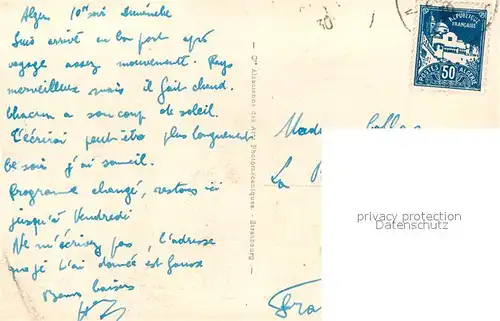 Alger 10h soir Dimanche
Suis arrivé en bon port après
voyage assez mouvementé. Pays
merveilleux mais il fait chaud.
chacun a son coup de soleil.
T'écrirai peut être plus longuement
Ce soir j'ai sommeil.
Programme changé, restons ici
jusqu'à Vendredi
Ne m'écrivez pas, l'adresse
que je t'ai donnée est fausse
Bons baisers
Cie Alsacienne des Arts Photomécaniques - Strasbourg
REPUBLIQUE
FRANCAISE
50
POSTES ALGERIE
La
privacy protection
Datenschutz